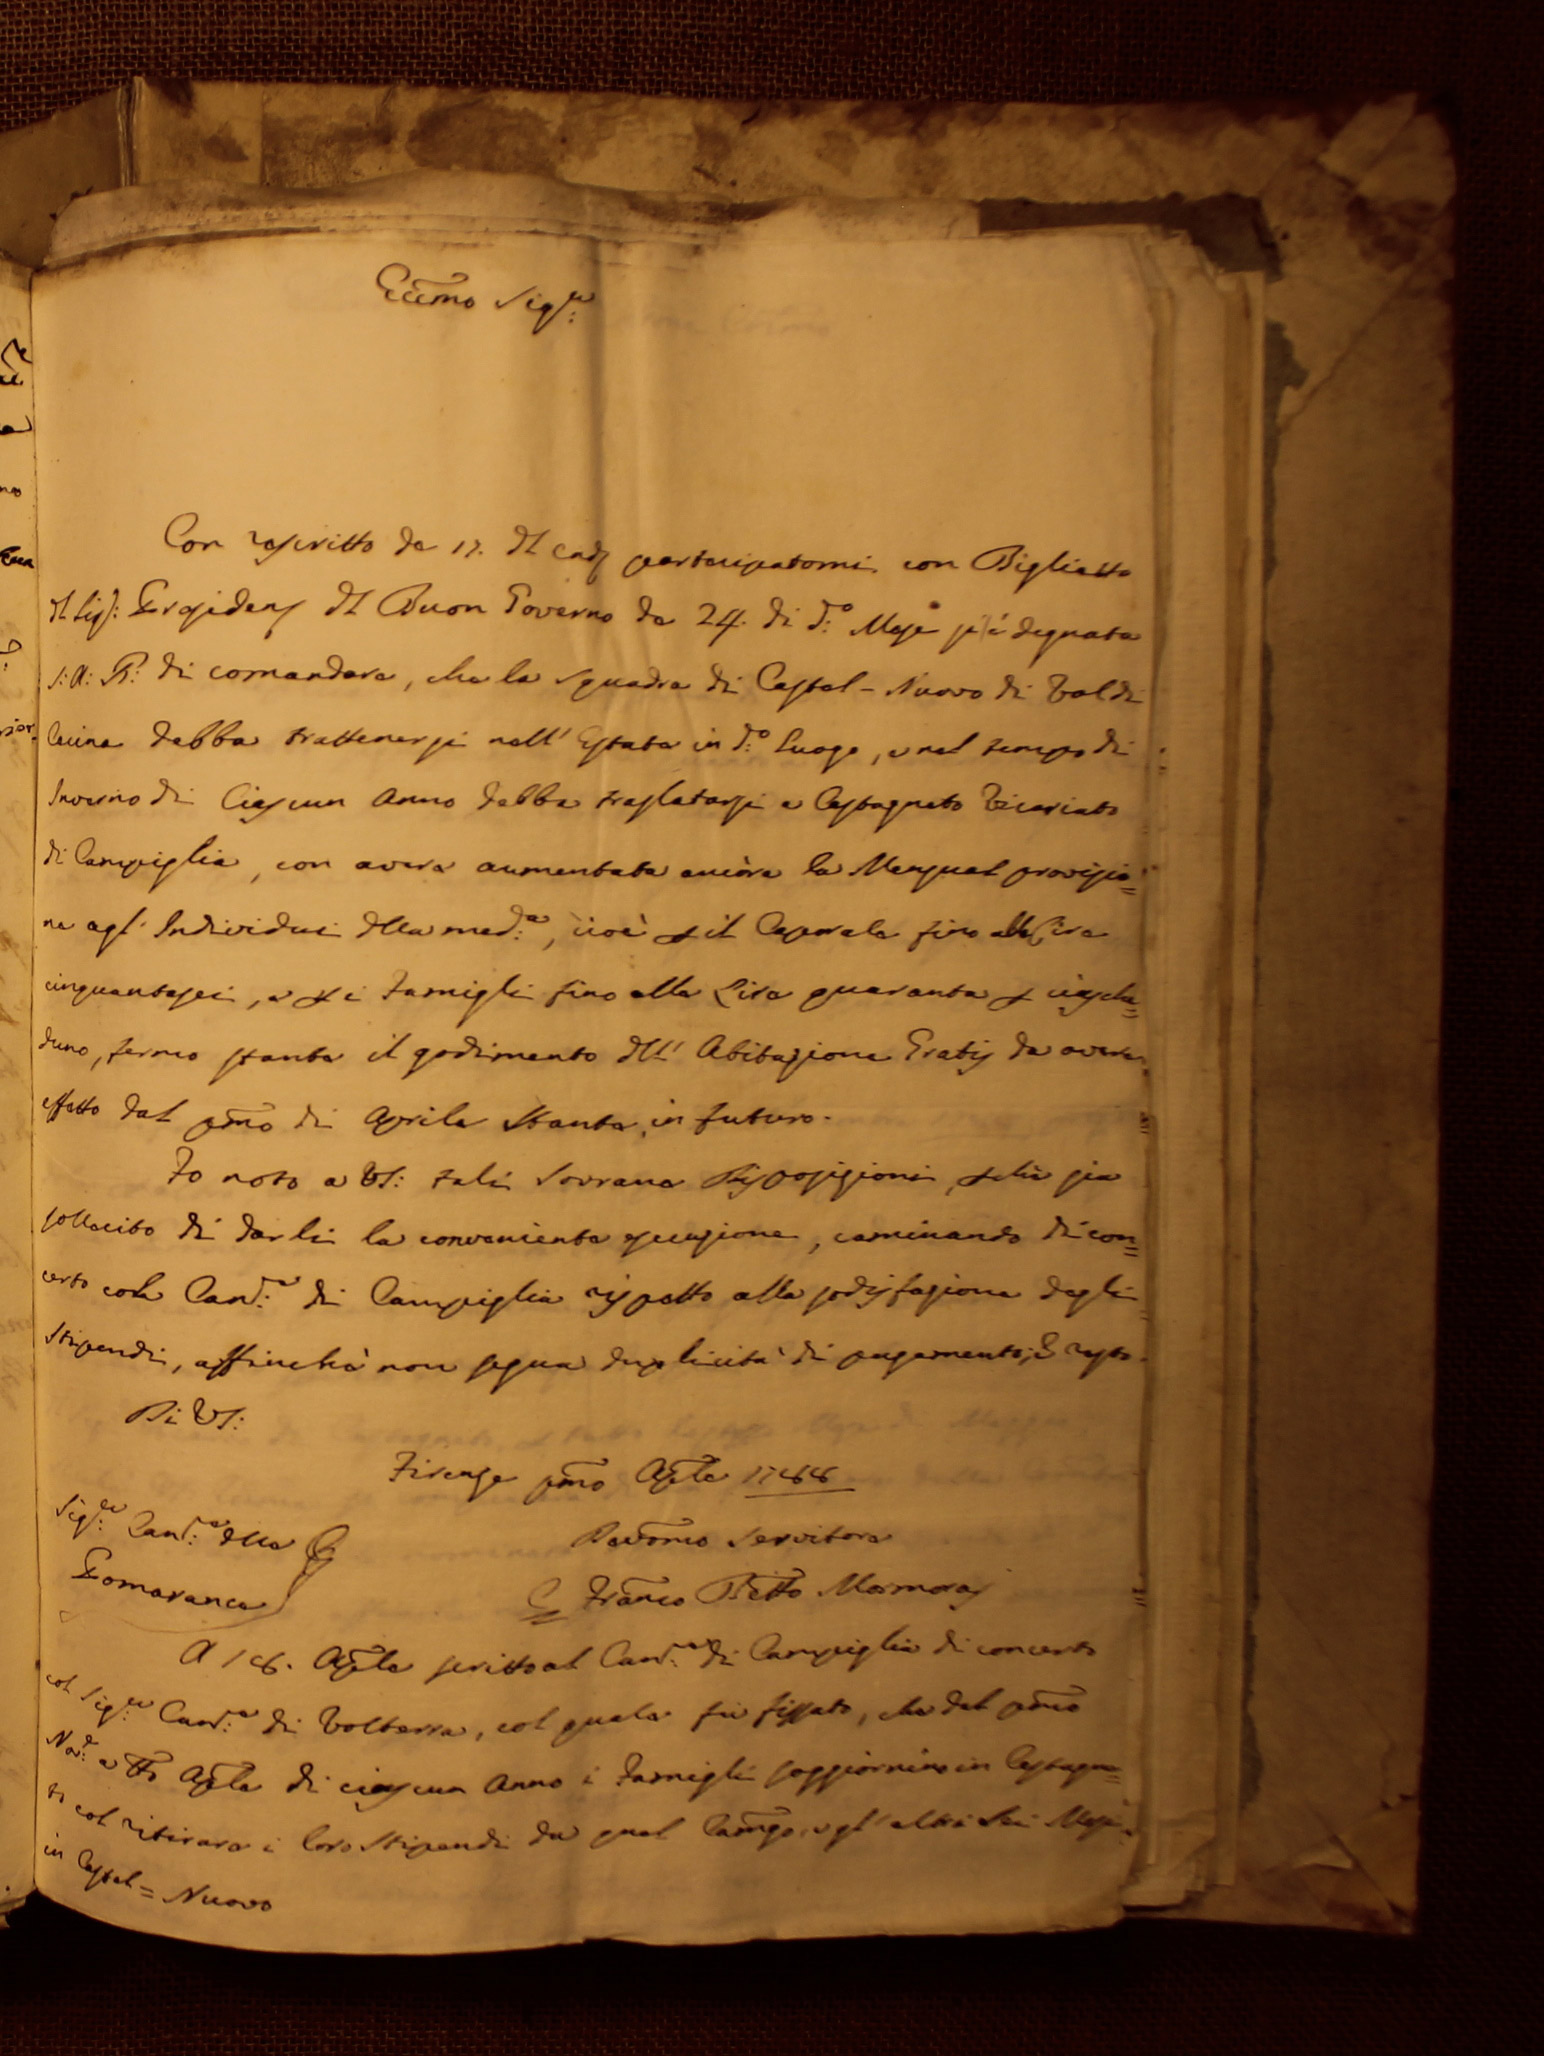 Eccmo Sigre:
Con rescritto de 17. del cad partecipatomi con Biglietto
del Sig: Presidens del Buon Governo de 24. di do: Mese si è degnata
S: A: R: di comandare, che la squadra di Castel-Nuovo di Val di
Cecina debba trattenersi nell' Estate in do: Luogo, e nel tempo di
Inverno di Ciascun Anno debba traslatarsi a Castagneto Vicariato
di Campiglia, con avere aumentata ancòra la Mensual provisio=
ne agl' Individui della meda:, cioè p il Caporale fino alle Lire
cinquantasei, e p i Famigli fino alle Lire quaranta p ciasche=
duno, fermo stante il godimento dell' Abitazione Gratis da avere
effetto dal pmo di Aprile stante in futuro.
Fo noto a VS: tali Sovrane Disposizioni, p chè sia
sollecito di darli la conveniente esecuzione, caminando di con=
certo col Cane: di Campiglia rispetto alla sodisfazione degli
Stipendi, affinchè non segua duplicità di pagamento; E resto
Di VS:
Firenze pmo Aple 1788
Sigre: Cane: della
Pomarance
Devomo Servitore
Franco Betto Mormoraj
A 18. Aple scritto al Cane: di Campiglia di concerto
col Sigre: Cane: di Volterra, col quale fù fissato, che dal pmo
Nove: a tto Aple di ciascun Anno i Famigli soggiornino in Castagne=
to col ritirare i loro Stipendi da quel Camgo, e gl' altri Sei Mesi
in Castel= Nuovo